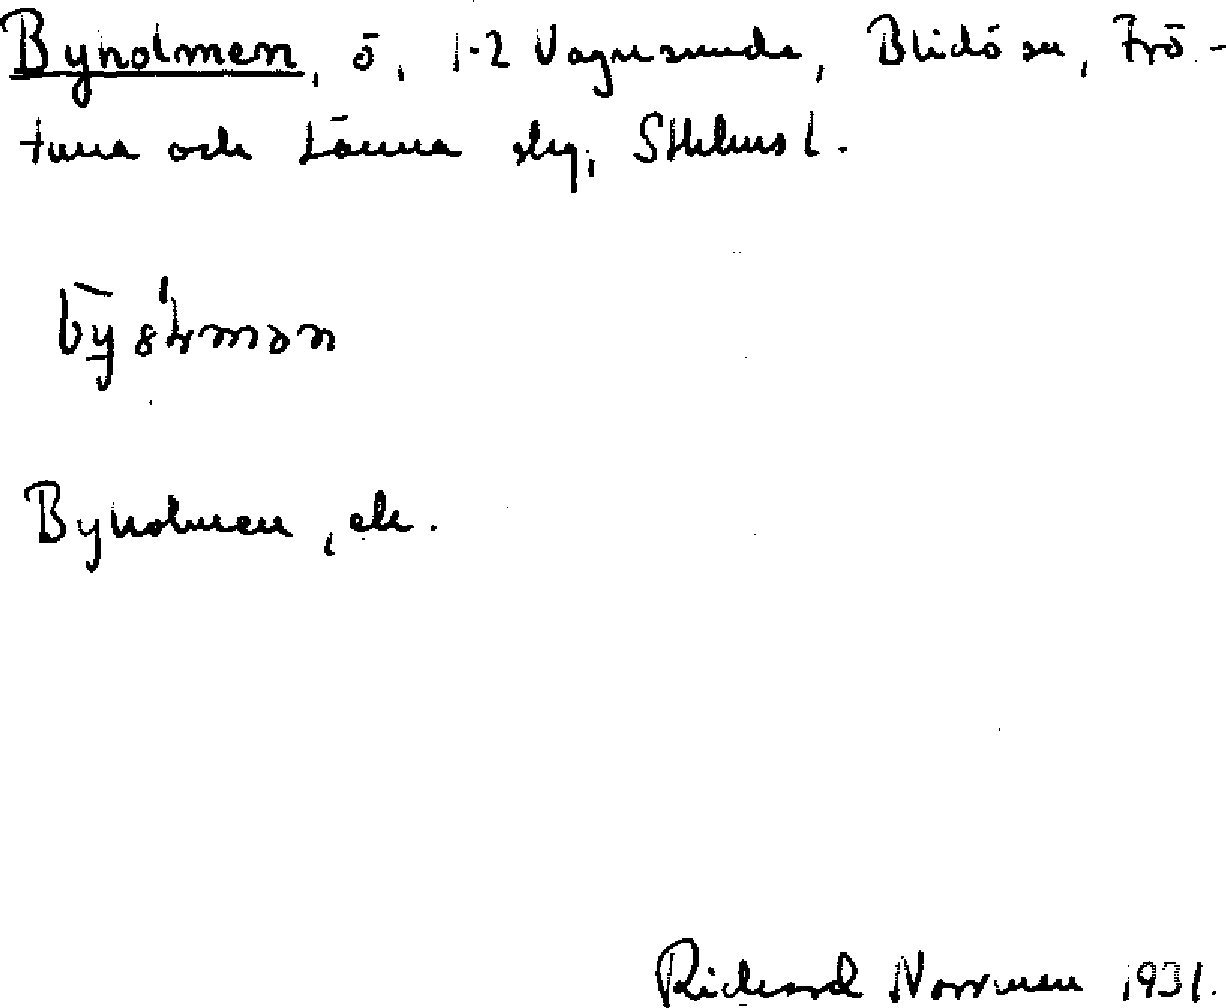 Byholmen, ö, 1-2 Vagnsunda, Blidö sn, Frö-
tuna och Länna skg, Sthlms l.
Byholmen, ek.
Richard Norrman 1931.